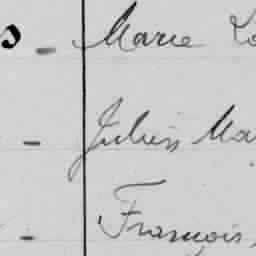 s - Marie Lo
- Julien Ma
- François